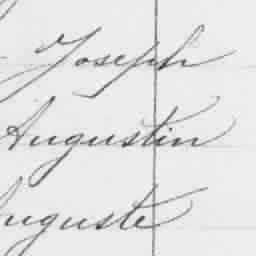 Joseph
Augustin
Auguste